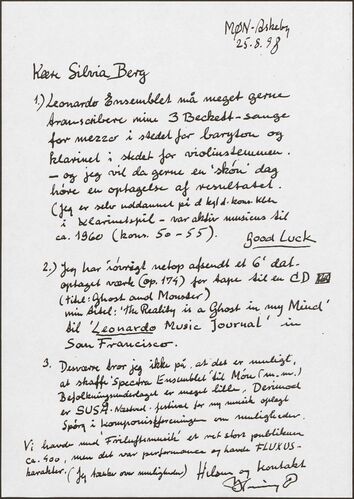 MØN-Askeby
25.8.98
Kære Silvia Berg
1.) Leonardo Ensemblet må meget gerne
transcribere mine 3 Beckett-sange
for mezzo i stedet for baryton og
klarinet i stedet for violinstemmen.
– og jeg vil da gerne en 'skøn' dag
høre en optagelse af resultatet.
(jeg er selv uddannet på d kgl d. kons. Kbh
i klarinetspil – var aktiv musicus til
ca. 1960 (kons. 50-55).
Good Luck
2.) Jeg har iøvrigt netop afsendt et 6' dat-
optaget værk (op. 174) for tape til en CD
(titel: Ghost and Monster)
min titel: 'The Reality is a Ghost in my Mind'
til 'Leonardo Music Journal' in
San Francisco.
3. Desværre tror jeg ikke på, at det er muligt,
at skaffe Spectra Ensemblet til Møn (m.m.)
Befolkningsunderlaget er meget lille. Derimod
er SUSÅ festival for ny musik oplagt
Spørg i Komponistforeningen om muligheder.
Vi havde med 'Friluftsmusik' et ret stort publikum
ca. 400, men det var performance og havde FLUXUS-
karakter. (jeg tænker over muligheder) Hilsen og kontakt